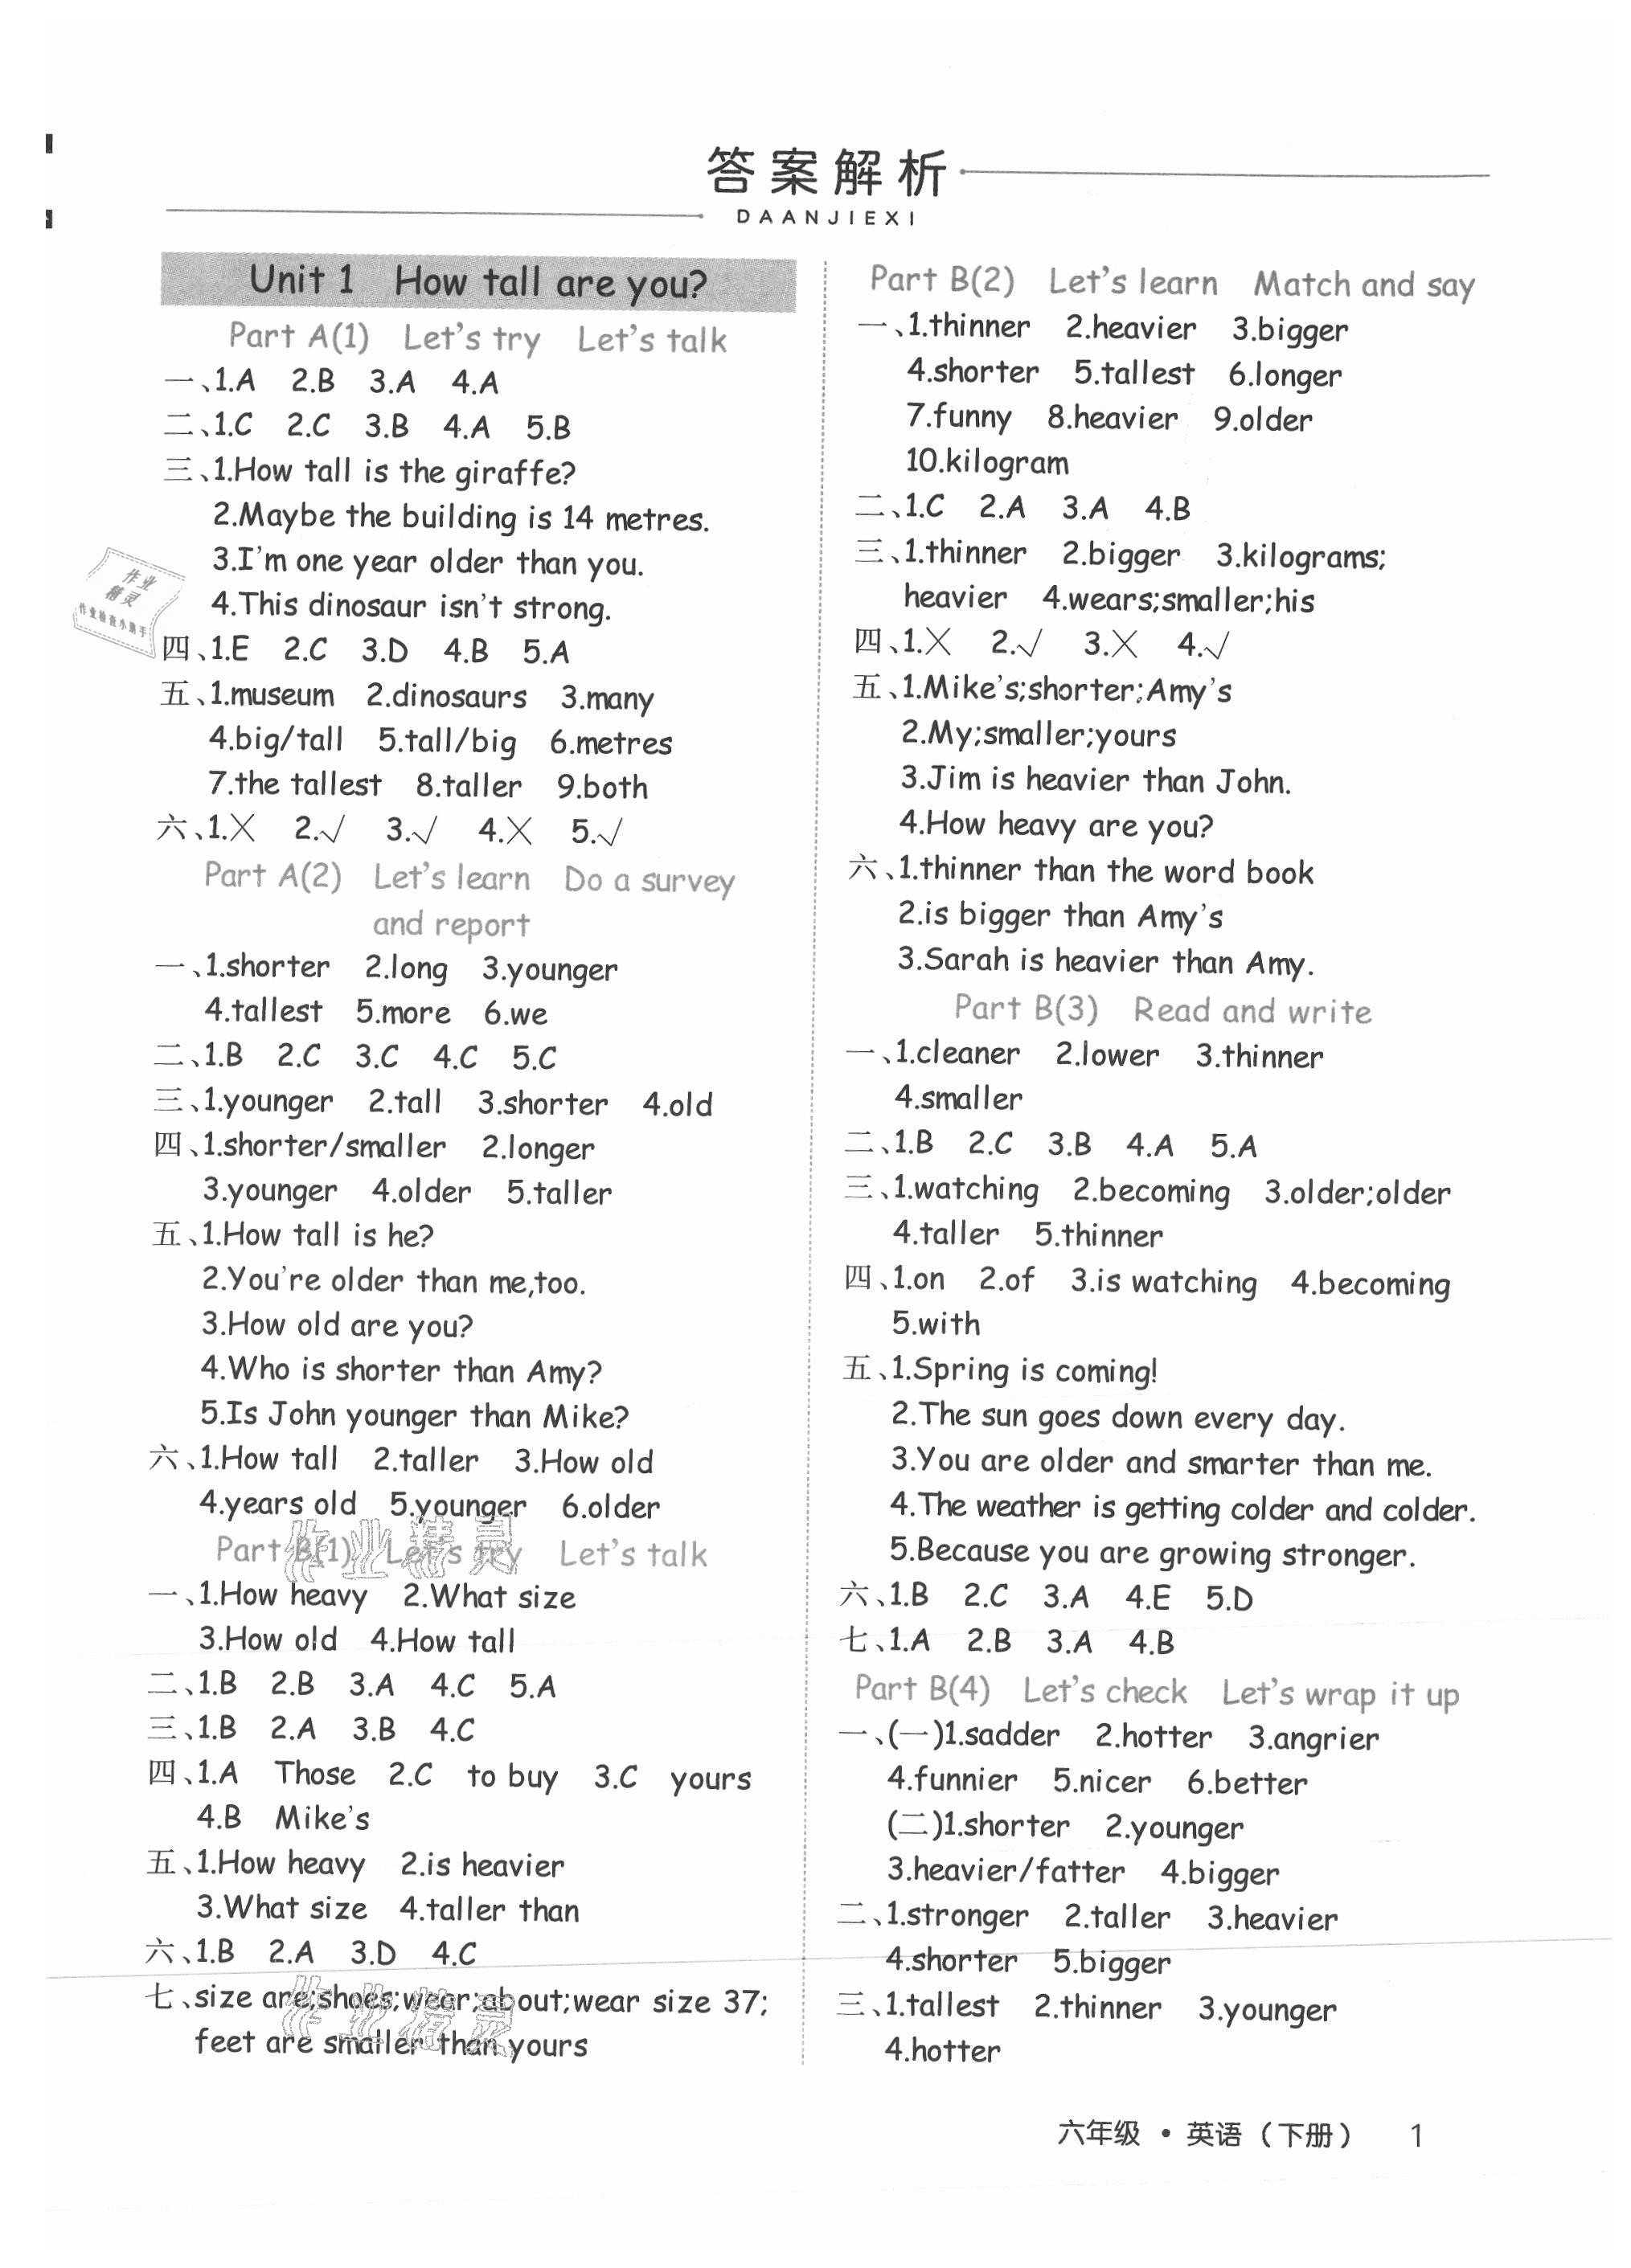 答案解析
DAANJIEXI
Unit 1 How tall are you?
Part A(1) Let's try Let's talk
一、1.A 2.B 3.A 4.A
二、1.C 2.C 3.B 4.A 5.B
三、1.How tall is the giraffe?
2.Maybe the building is 14 metres.
3.I'm one year older than you.
4.This dinosaur isn't strong.
四、1.E 2.C 3.D 4.B 5.A
五、1.museum 2.dinosaurs 3.many
4.big/tall 5.tall/big 6.metres
7.the tallest 8.taller 9.both
六、1.╳ 2.√ 3.√ 4.╳ 5.√
Part A(2) Let's learn Do a survey
and report
一、1.shorter 2.long 3.younger
4.tallest 5.more 6.we
二、1.B 2.C 3.C 4.C 5.C
三、1.younger 2.tall 3.shorter 4.old
四、1.shorter/smaller 2.longer
3.younger 4.older 5.taller
五、1.How tall is he?
2.You're older than me,too.
3.How old are you?
4.Who is shorter than Amy?
5.Is John younger than Mike?
六、1.How tall 2.taller 3.How old
4.years old 5.younger 6.older
Part B(1) Let's try Let's talk
一、1.How heavy 2.What size
3.How old 4.How tall
二、1.B 2.B 3.A 4.C 5.A
三、1.B 2.A 3.B 4.C
四、1.A Those 2.C to buy 3.C yours
4.B Mike's
五、1.How heavy 2.is heavier
3.What size 4.taller than
六、1.B 2.A 3.D 4.C
七、size are;shoes;wear;about;wear size 37;
feet are smaller than yours
Part B(2) Let's learn Match and say
一、1.thinner 2.heavier 3.bigger
4.shorter 5.tallest 6.longer
7.funny 8.heavier 9.older
10.kilogram
二、1.C 2.A 3.A 4.B
三、1.thinner 2.bigger 3.kilograms;
heavier 4.wears;smaller;his
四、1.╳ 2.√ 3.╳ 4.√
五、1.Mike's;shorter;Amy's
2.My;smaller;yours
3.Jim is heavier than John.
4.How heavy are you?
六、1.thinner than the word book
2.is bigger than Amy's
3.Sarah is heavier than Amy.
Part B(3) Read and write
一、1.cleaner 2.lower 3.thinner
4.smaller
二、1.B 2.C 3.B 4.A 5.A
三、1.watching 2.becoming 3.older;older
4.taller 5.thinner
四、1.on 2.of 3.is watching 4.becoming
5.with
五、1.Spring is coming!
2.The sun goes down every day.
3.You are older and smarter than me.
4.The weather is getting colder and colder.
5.Because you are growing stronger.
六、1.B 2.C 3.A 4.E 5.D
七、1.A 2.B 3.A 4.B
Part B(4) Let's check Let's wrap it up
一、(一)1.sadder 2.hotter 3.angrier
4.funnier 5.nicer 6.better
(二)1.shorter 2.younger
3.heavier/fatter 4.bigger
二、1.stronger 2.taller 3.heavier
4.shorter 5.bigger
三、1.tallest 2.thinner 3.younger
4.hotter
作业
精灵
作业检查小助手
作业精灵
作业精灵
六年级·英语（下册） 1